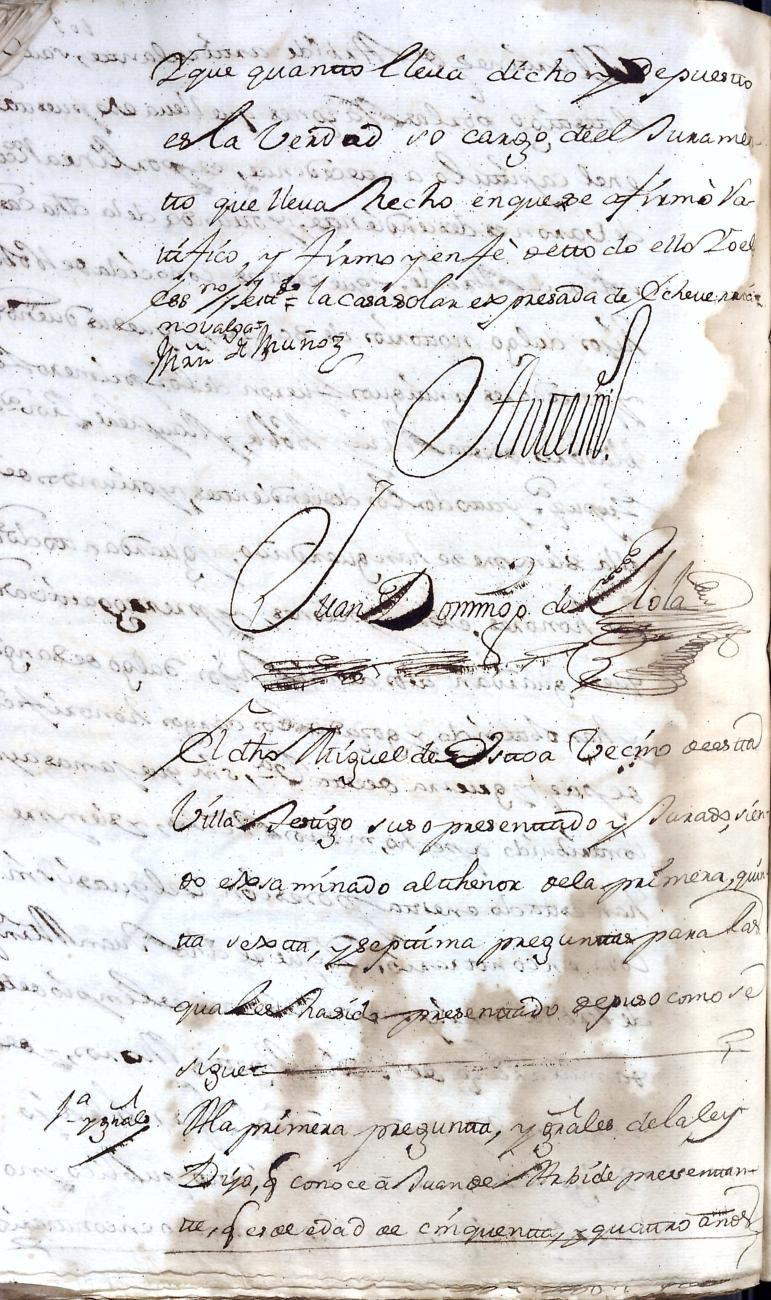 Y que quantto lleva dicho y Depuestto
es la Verdad so cargo, de el Juramen
tto que lleva hecho en que se afirmò Ra-
ttifico, y firmo y en fè de tto do ello Yo el
ess.no // testt.do = la casa solar expresada de Echeverria =
no valga =
Mrn de Muñoz
Antemi
Juan Domingo de Elola
El dho Miguel de Vsttoa Vecino de estta
Villa testigo suso presenttado y Jurado, sien
do exsaminado al thenor de la primera, quin
tta sextta, y septtima preguntas para las
quales ha sido presenttado depuso como se
sigue
1a y gnrales
A la primera pregunta, y gnrales de la ley
Dijo, q conoce à Juan de Arbide presenttan-
tte, q es de edad de cinquentta, y quattro años